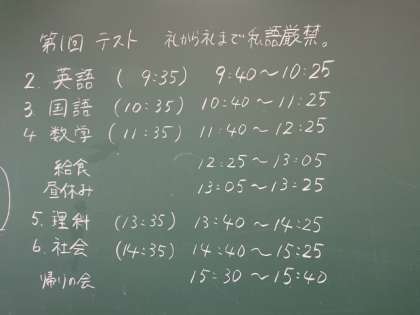 第1回 テスト 礼から礼まで私語厳禁。
2. 英語 ( 9:35) 9:40～10:25
3. 国語 (10:35) 10:40～11:25
4 数学 (11:35) 11:40～12:25
給食 12:25～13:05
昼休み 13:05～13:25
5. 理科 (13:35) 13:40～14:25
6. 社会 (14:35) 14:40～15:25
帰りの会 15:30～15:40